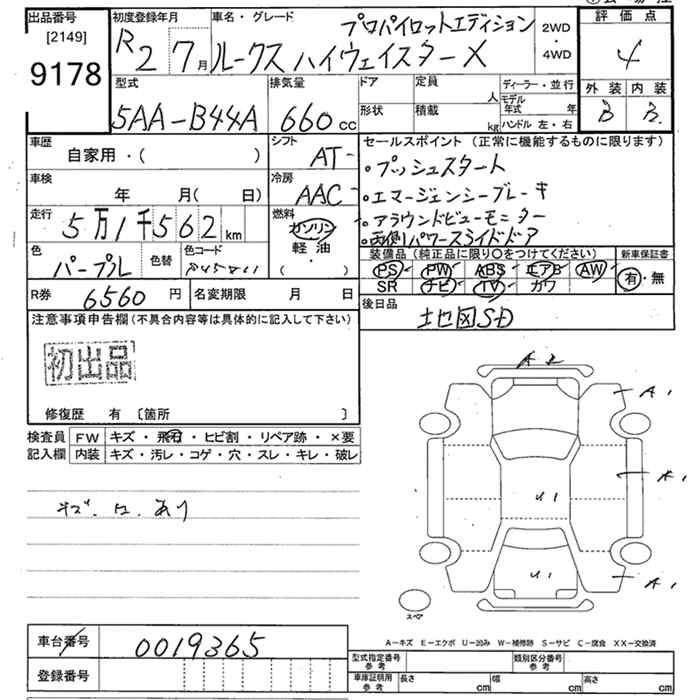 出品番号
[2149]
9178
初度登録年月
R2 7月
車名・グレード
プロパイロットエディション
ルークス ハイウェイスターX
2WD
・
4WD
評価点
4
外装 内装
B B
型式
5AA-B44A
排気量
660cc
ドア
定員
人
形状
積載
kg
ディーラー・並行
モデル年式 年
ハンドル 左・右
車歴
自家用・( )
シフト
AT-
車検
年 月( 日)
冷房
AAC
走行
5万1千562km
燃料
ガソリン
軽油
( ・ )
色
パープル
色替
色コード
R券
6560円
名変期限 月 日
セールスポイント(正常に機能するものに限ります)
・プッシュスタート
・エマージェンシーブレーキ
・アラウンドビューモニター
・両側パワースライドドア
装備品(純正品に限り○をつけてください)
PS PW ABS エアB AW
SR ナビ TV カワ
新車保証書
有・無
後日品
地図SD
注意事項申告欄(不具合内容等は具体的に記入して下さい)
初出品
修復歴 有 〔箇所 〕
検査員記入欄
FW キズ・飛石・ヒビ割・リペア跡・×要
内装 キズ・汚レ・コゲ・穴・スレ・キレ・破レ
キズ.凹.あり
A2
A1
A1
U1
U1
A1
スペア
A-キズ E-エクボ U-凹み W-補修跡 S-サビ C-腐食 XX-交換済
車台番号
0019365
登録番号
型式指定番号 参考
類別区分番号 参考
車庫証明用 参考
長さ cm
幅 cm
高さ cm